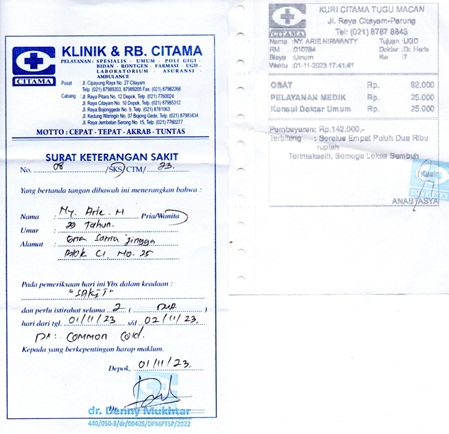 KLINIK & RB. CITAMA
PELAYANAN : SPESIALIS - UMUM - POLI GIGI
BIDAN - RONTGEN - FARMASI - UGD
LABORATORIUM - ASURANSI
AMBULANCE
CITAMA
Pusat : Jl. Cipayung Raya No. 27 Citayam
Cabang : Jl. Raya Pitara No. 12 Depok, Telp. (021)
Jl. Raya Citayam No. 10 Depok, Telp. (021)
Jl. Raya Bojonggede No. 9, Telp. (021)
Jl. Raya Jembatan Serong No. 16, Telp. (021)
MOTTO : CEPAT - TEPAT - AKRAB - TUNTAS
SURAT KETERANGAN SAKIT
No. 08 /SKS/CTM/ 23.
Yang bertanda tangan dibawah ini menerangkan bahwa :
Nama : Ny. Arie. N Pria/Wanita
Umur : Tahun.
Alamat : Jingga
Blok C1 No. 25
Pada pemeriksaan hari ini Ybs dalam keadaan :
"SAKIT"
dan perlu istirahat selama 2 ( dua )
hari dari tgl. 01/11/23 s/d 02/11/23
Dx : Common Cold.
Kepada yang berkepentingan harap maklum.
Depok, 01/11/23.
Dr.
dr. Denny Mukhtar
440/050-3/dr/00425/DPMPTSP/2022
KLIRI CITAMA TUGU MACAN
Jl. Raya Citayam-Parung
Telp: (021) 8787 8843
CITAMA
Nama : NY. ARIE NIRWANTY Tujuan : UGD
RM : 010784 Dokter : Dr. Herla
Biaya : Umum Ke : IT
Waktu : 01-11-2023 17:41:41
OBAT Rp. 92.000
PELAYANAN MEDIK Rp. 25.000
Konsul Dokter Umum Rp. 25.000
Pembayaran: Rp.142.000,-
Terbilang : Seratus Empat Puluh Dua Ribu
rupiah
Terimakasih, Semoga Lekas Sembuh
ANASTASYA